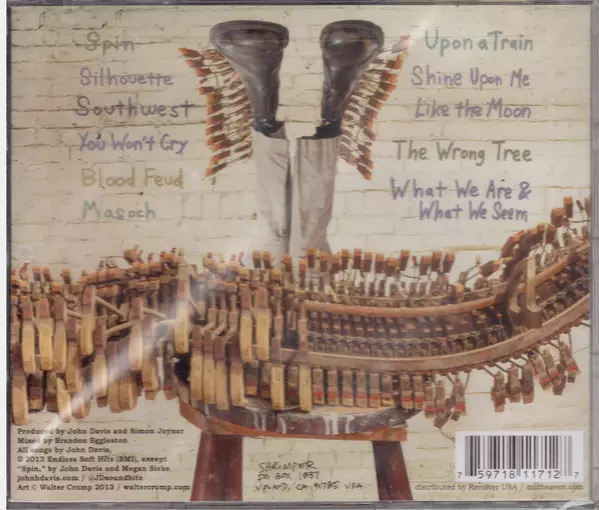 Spin
Silhouette
Southwest
You Won't Cry
Blood Feud
Masoch
Upon a Train
Shine Upon Me
Like the Moon
The Wrong Tree
What We Are &
What We Seem
Produced by John Davis and Simon Joyner
Mixed by Brandon Eggleston
All songs by John Davis,
© 2013 Endless Soft Hits (BMI), except
"Spin," by John Davis and Megan Siebe
johnhdavis.com / @JDsoundbite
Art © Walter Cromp 2013 / waltercromp.com
SHRIMPER
PO BOX 1837
UPLAND, CA. 91785 USA
7 59718 11712 7
distributed by Revolver USA / midheaven.com